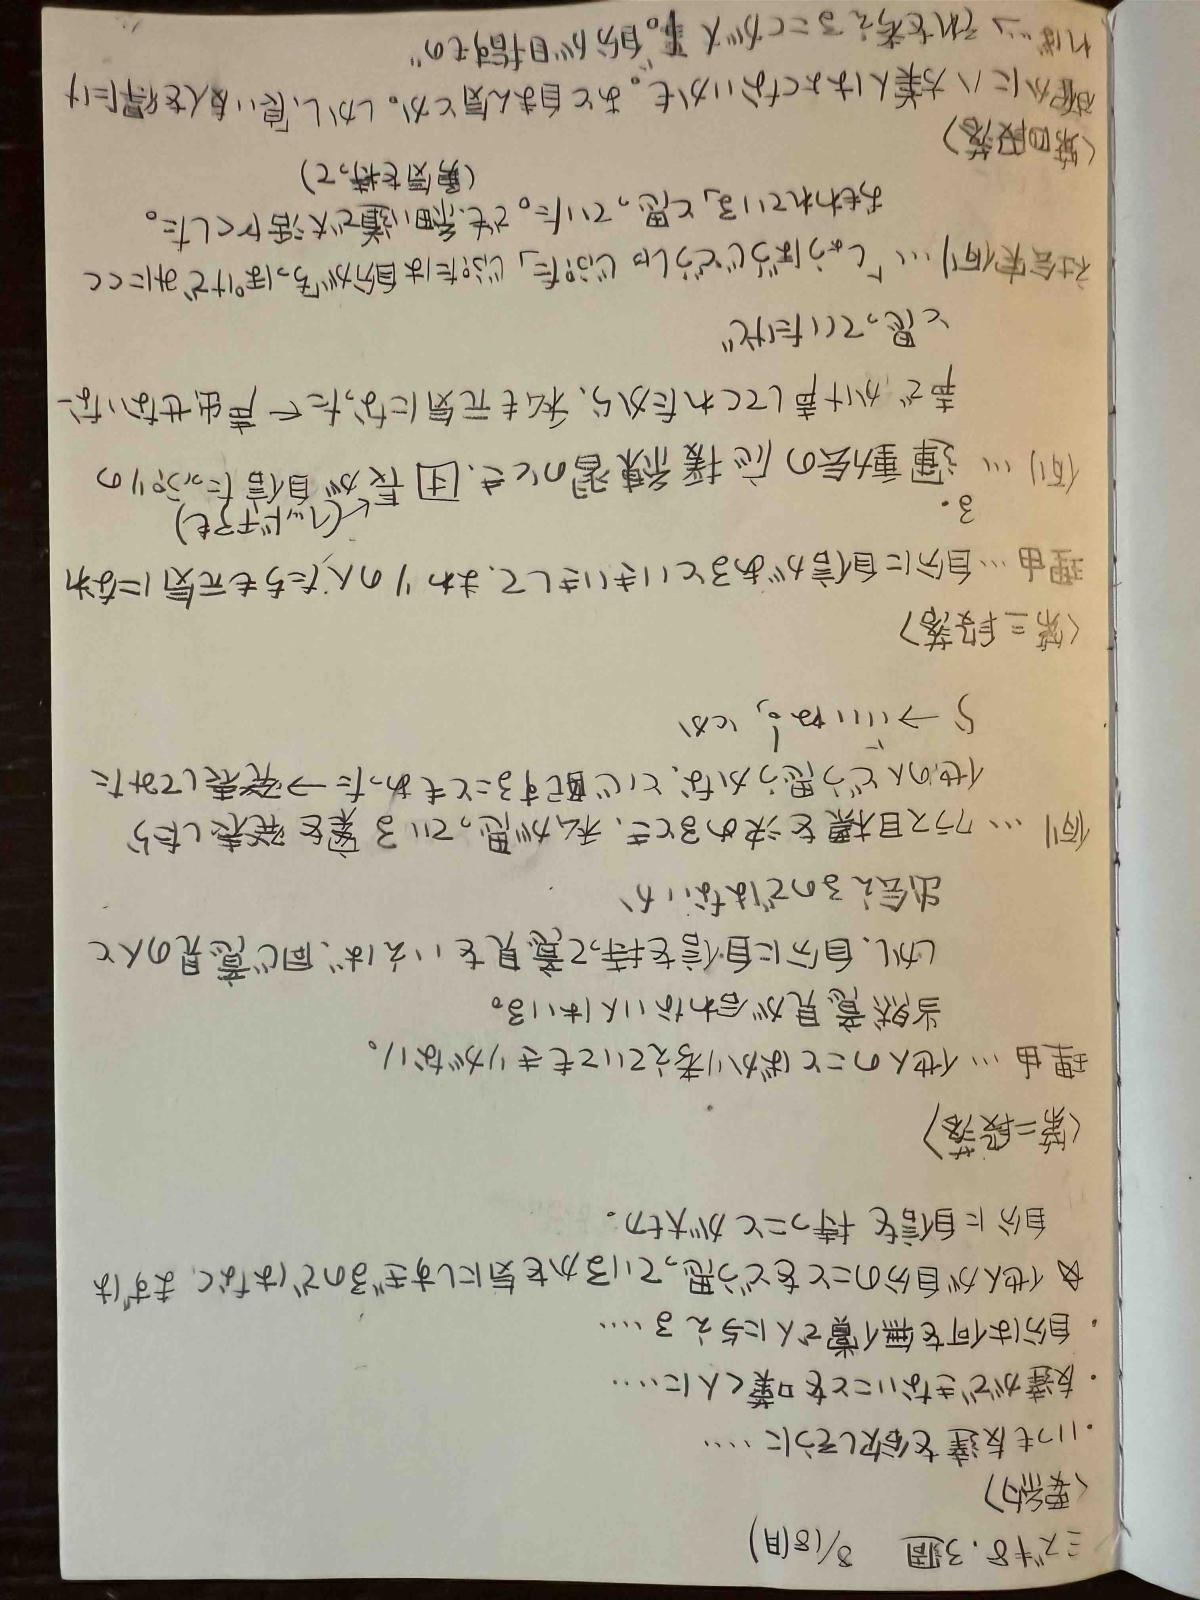 ミズキ8.3週 8/18(月)
〈要約〉
・いつも友達を欲しそうに….
・友達ができないことを嘆く人に….
・自分は何を無償で人に与える….
☆他人が自分のことをどう思っているかを気にしすぎるのではなく、まずは
自分に自信を持つことが大切.
〈第二段落〉
理由…他人のことばかり考えていてもきりがない。
当然意見が合わない人はいる。
しかし、自分に自信を持って意見をいえば、同じ意見の人と
出会えるのではないか
例…クラス目標を決めるとき、私が思っている案を発表したら
他の人どう思うかな、と心配することもあった→発表してみた
ら→「いいね!」とか
〈第三段落〉
理由…自分に自信があるといきいきして、まわりの人たちも元気になれ
る. (ヘッドギアも)
例…運動会の応援練習のとき、団長が自信たっぷりの
声でかけ声してくれたから、私も元気になった ← 声出せないな-
と思っていたけど
社会実例…「しょうぼうじどうしゃじぷた」じぷたは自分が「ちっぽけでみにくく
おもわれている」と思っていた。でも、細い道で大活やくした。
(勇気を持って)
〈第四段落〉
確かに八方美人はよくないかも。あと自まん気とか。しかし、「良い友人を得たけ
れば… それを考えることが大事。自分が目指すもの"